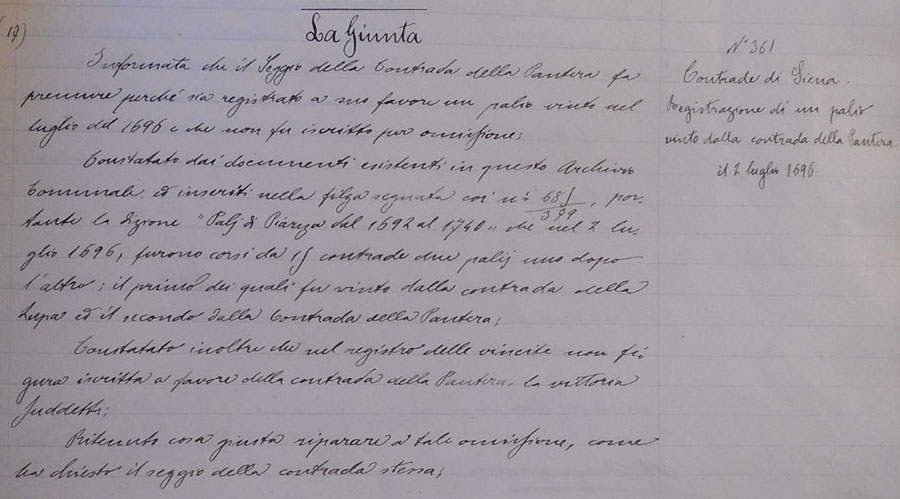 19)
La Giunta
Informata che il Seggio della Contrada della Pantera fa
premure perché sia registrato a suo favore un palio vinto nel
luglio del 1696 e che non fu iscritto per omissione;
Constatato dai documenti esistenti in questo Archivio
Comunale ed inseriti nella filza segnata coi ni 685/399, por-
tante la dizione "Palj di Piazza dal 1692 al 1740" che nel 2 lu-
glio 1696, furono corsi da 15 contrade due palij uno dopo
l'altro; il primo dei quali fu vinto dalla contrada della
Lupa ed il secondo dalla Contrada della Pantera;
Constatato inoltre che nel registro delle vincite non fi-
gura iscritta a favore della contrada della Pantera la vittoria
suddetta;
Ritenuto cosa giusta riparare a tale omissione, come
ha chiesto il seggio della contrada stessa;
N° 361
Contrade di Siena.
Registrazione di un palio
vinto dalla contrada della Pantera
il 2 luglio 1696.